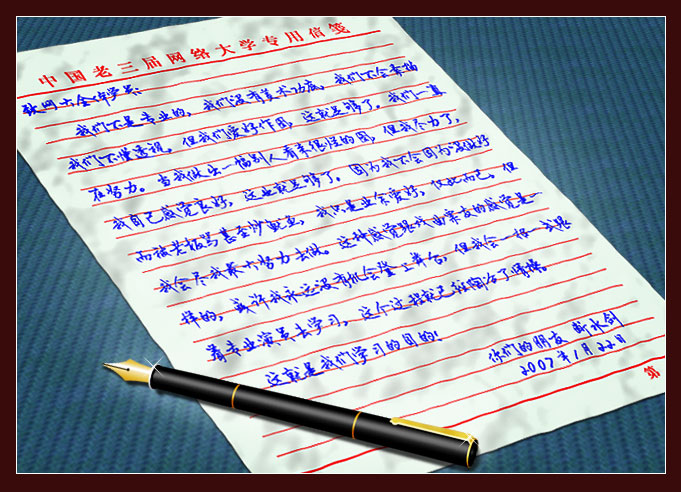 中国老三届网络大学专用信笺
致网大全体学员:
我们不是专业的,我们没有美术功底,我们不会素描
我们不懂透视。但我们爱好作图,这就足够了。我们一直
在努力。当我做出一幅别人看来很怪的图,但我尽力了,
我自己感觉良好,这也就足够了。因为我不会因为没做好
而被老板骂甚至炒鱿鱼,我只是业余爱好,仅此而已。但
我会尽我最大努力去做。这种感觉跟戏曲票友的感觉是一
样的,或许我永远没有机会登上舞台,但我会一招一式跟
着专业演员去学习,这个过程就已经陶冶了情操。
这就是我们学习的目的!
你们的朋友 断水剑
2007年1月22日
第